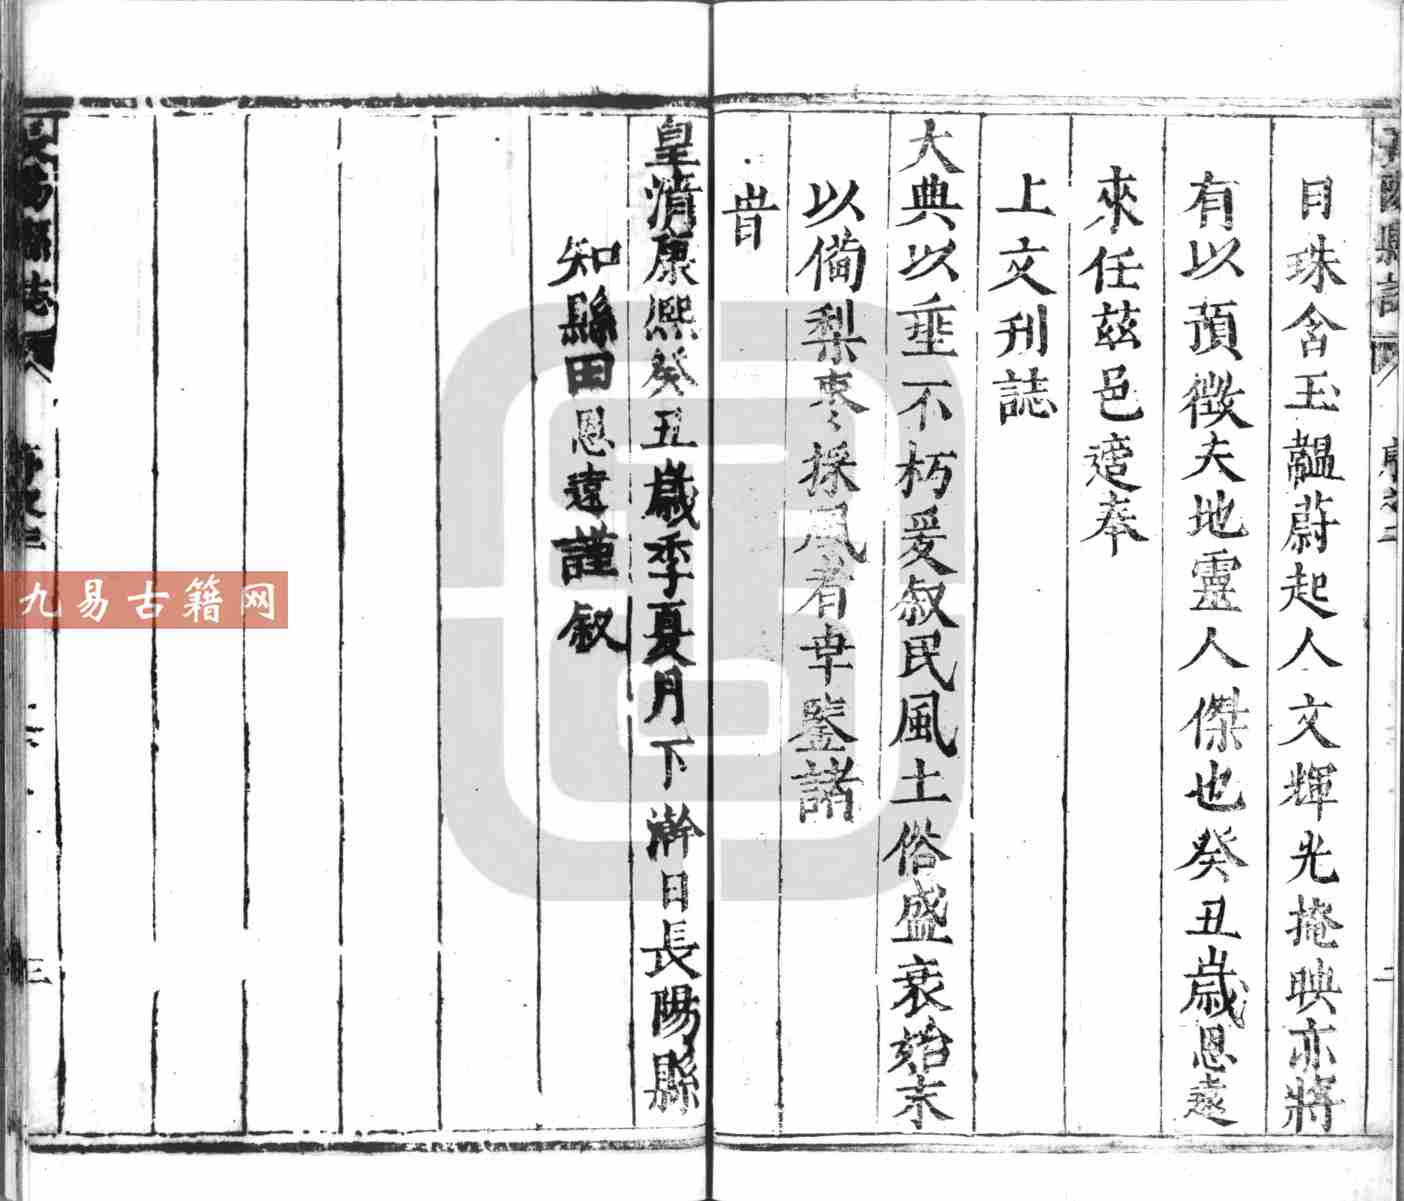 目珠含玉韞蔚起人文輝光掩映亦將
有以預徵夫地靈人傑也癸丑歲恩遠
來任茲邑適奉
上文刊誌
大典以垂不朽爰叙民風土俗盛衰始末
以備梨枣採風者幸鑒諸
昔
皇清康熙癸丑歲季夏月下澣日長陽縣
知縣田恩遠謹叙
長陽縣誌
三
九易古籍网